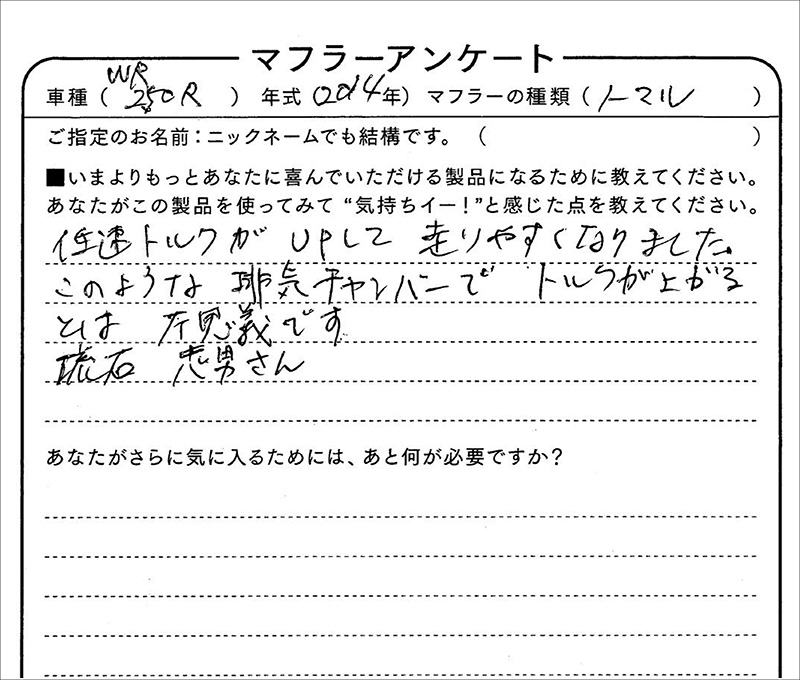 マフラーアンケート
車種（WR250R）年式（2014年）マフラーの種類（ノーマル）
ご指定のお名前：ニックネームでも結構です。（　）
■いまよりもっとあなたに喜んでいただける製品になるために教えてください。
あなたがこの製品を使ってみて“気持ちイー！”と感じた点を教えてください。
低速トルクがUPして走りやすくなりました。
このような排気チャンバーでトルクが上がる
とは不思議です
流石 忠男さん
あなたがさらに気に入るためには、あと何が必要ですか？